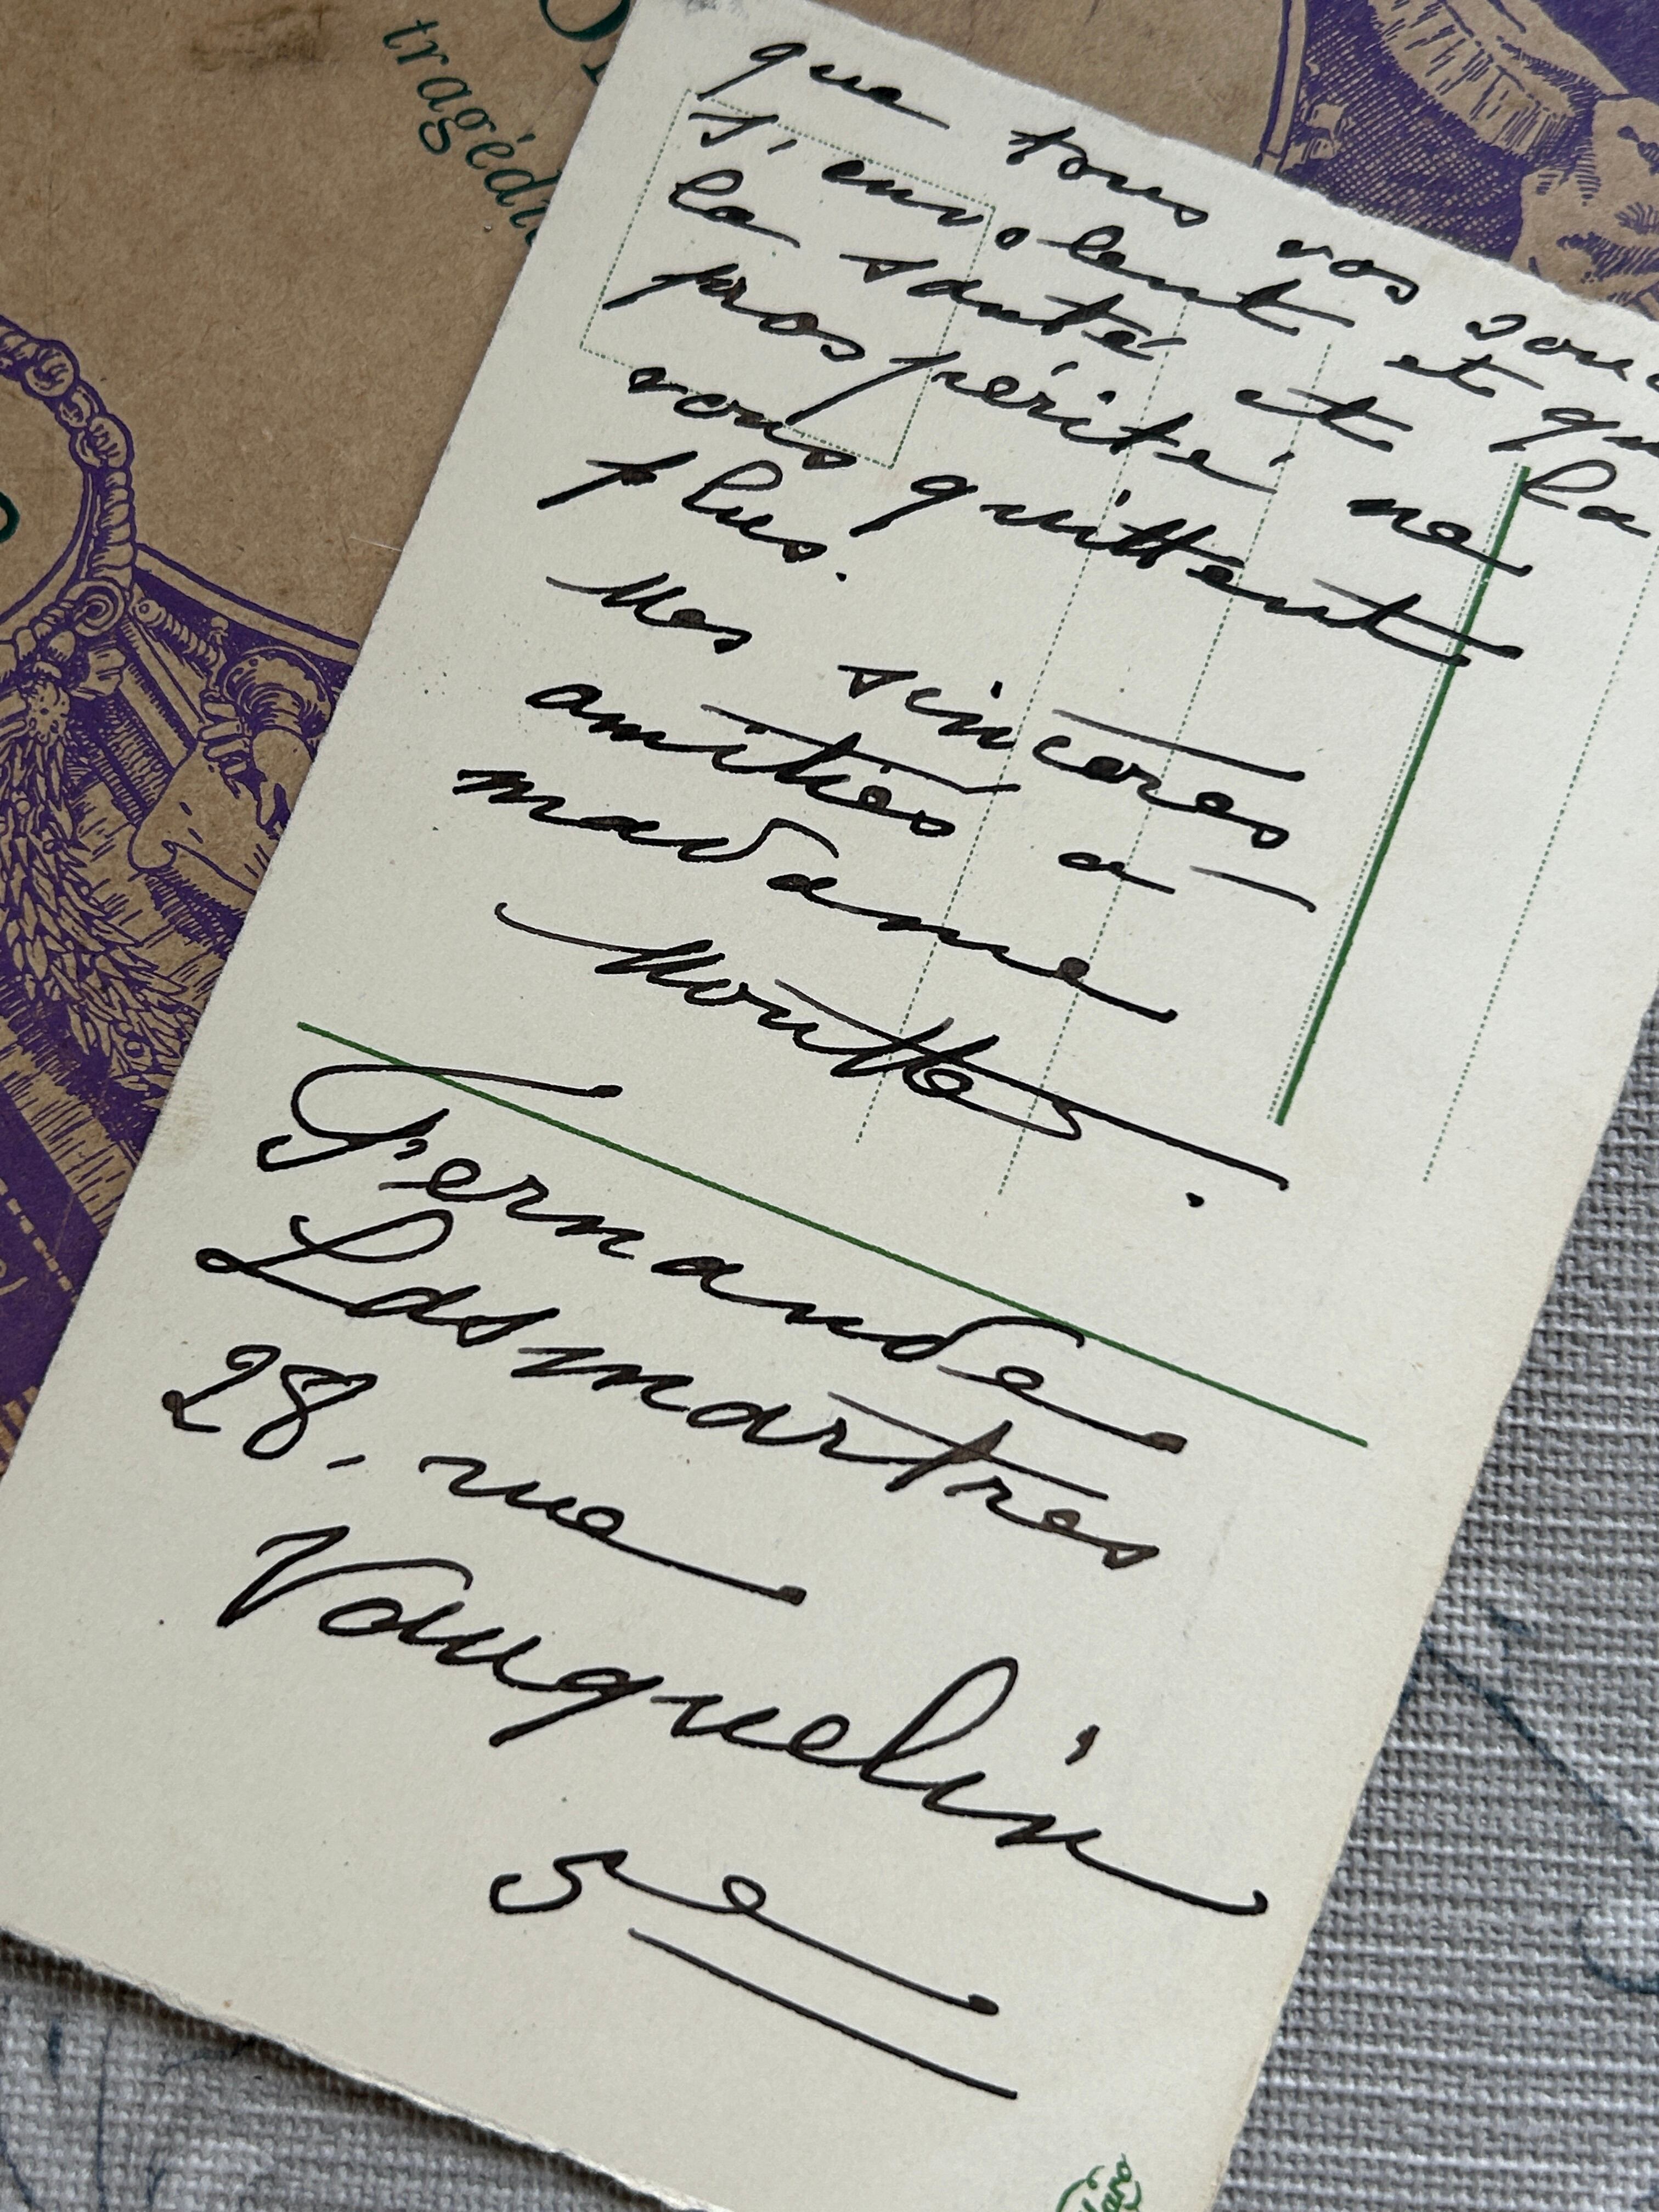 tragédi
que tous vos souc
s'envolent et qu
la santé et la
prospérité ne
vous quittent
plus.
Mes sincères
amitiés a
madame
Mouttes.
Fernande
Lasmartres
28, rue
Vauquelin
5e